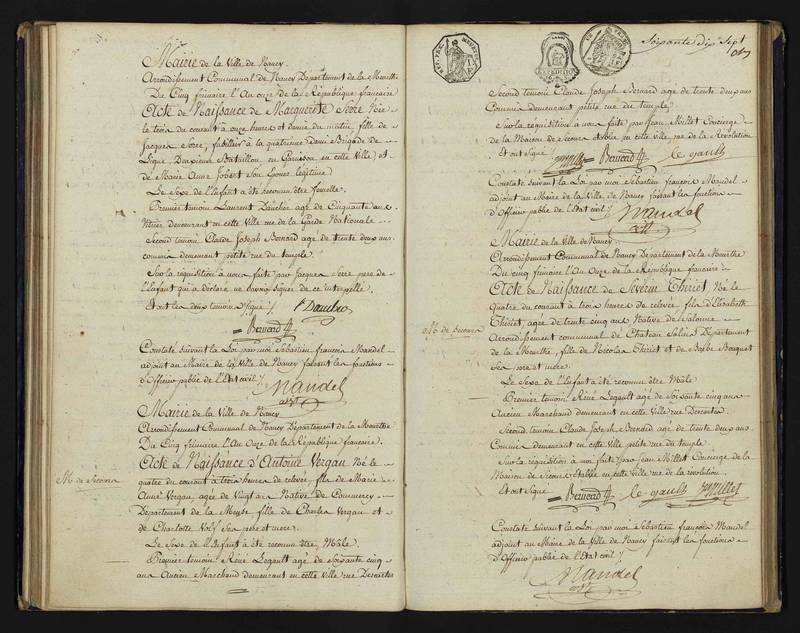 Mairie de la Ville de Nancy.
Arrondissement Communal de Nancy Département de la Meurthe
Du Cinq frimaire l'An Onze de la République française
Acte de Naissance de Marguerite Serre Née
le trois du courant à onze heures et demie du matin, fille de
Jacques Serre, fusillier à la quatrième demi Brigade de
Ligne, Bataillon, en Garnison en cette Ville, et
de Marie Anne Jobert son Epouse légitime.
Le Sexe de l'Enfant a été reconnu être femelle.
Premier témoin Laurent agé de Cinquante ans
Vitrier, demeurant en cette Ville rue de la Garde Nationale
Second témoin, Claude Joseph Bernard agé de trente deux ans
commis demeurant petite rue du temple.
Sur la réquisition à nous faite par Jacques Serre pere de
l'Enfant qui a déclaré ne savoir signer de ce interpellé.
Et ont les deux témoins signé
Bernard
Constaté suivant la Loi par moi Sébastien françois Mandel
adjoint au Maire de la Ville de Nancy faisant les fonctions
d'Officier public de l'Etat civil
Mandel
adjt
Mairie de la Ville de Nancy
Arrondissement Communal de Nancy Département de la Meurthe
Du Cinq frimaire l'An Onze de la République française.
Acte de Naissance d'Antoine Vergan Né le
quatre du courant à trois heures de relevée, fils de Marie
Anne Vergan, agée de Vingt ans Native de Commercy
Département de la Meuse fille de Charles Vergan et
de Charlotte Volf ses pere et mere.
Le Sexe de l'Enfant a été reconnu être Mâle.
Premier témoin René Legault agé de Soixante cinq
ans Ancien Marchand demeurant en cette Ville rue Descartes
Mon de Secours
Soixante dix Sept
Second témoin Claude Joseph Bernard agé de trente deux ans
Commis demeurant petite rue du temple.
Sur la réquisition à nous faite par Jean Millet Concierge
de la Maison de Secours établie en cette ville, rue de la Révolution
Et ont Signé
JMillet Bernard le gault
Constaté suivant la Loi par moi Sébastien françois Mandel
adjoint au Maire de la Ville de Nancy faisant les fonctions
d'Officier public de l'Etat civil
Mandel
adjt
Mairie de la Ville de Nancy
Arrondissement Communal de Nancy Département de la Meurthe
Du cinq frimaire l'An Onze de la République française
Acte de Naissance de Séverin Thiriet Né le
Quatre du courant à trois heures de relevée fils d'Elisabeth
Thiriet, agée de trente cinq ans Native de Salonne
Arrondissement communal de Chateau Salins Département
de la Meurthe, fille de Nicolas Thiriet et de Barbe Bouquet
ses pere et mere.
Le Sexe de l'Enfant a été reconnu être Mâle
Premier témoin René Legault agé de Soixante cinq ans
Ancien Marchand demeurant en cette Ville rue Descartes.
Second témoin Claude Joseph Bernard agé de trente deux ans
Commis demeurant en cette Ville petite rue du temple.
Sur la réquisition à nous faite par jean Millet Concierge de la
Maison de Secours établie en cette Ville rue de la revolution.
Et ont Signé Bernard le gault JMillet
Constaté suivant la Loi par moi Sébastien françois Mandel
adjoint au Maire de la Ville de Nancy faisant les fonctions
d'Officier public de l'Etat civil
Mandel
adjt
Mon de Secours